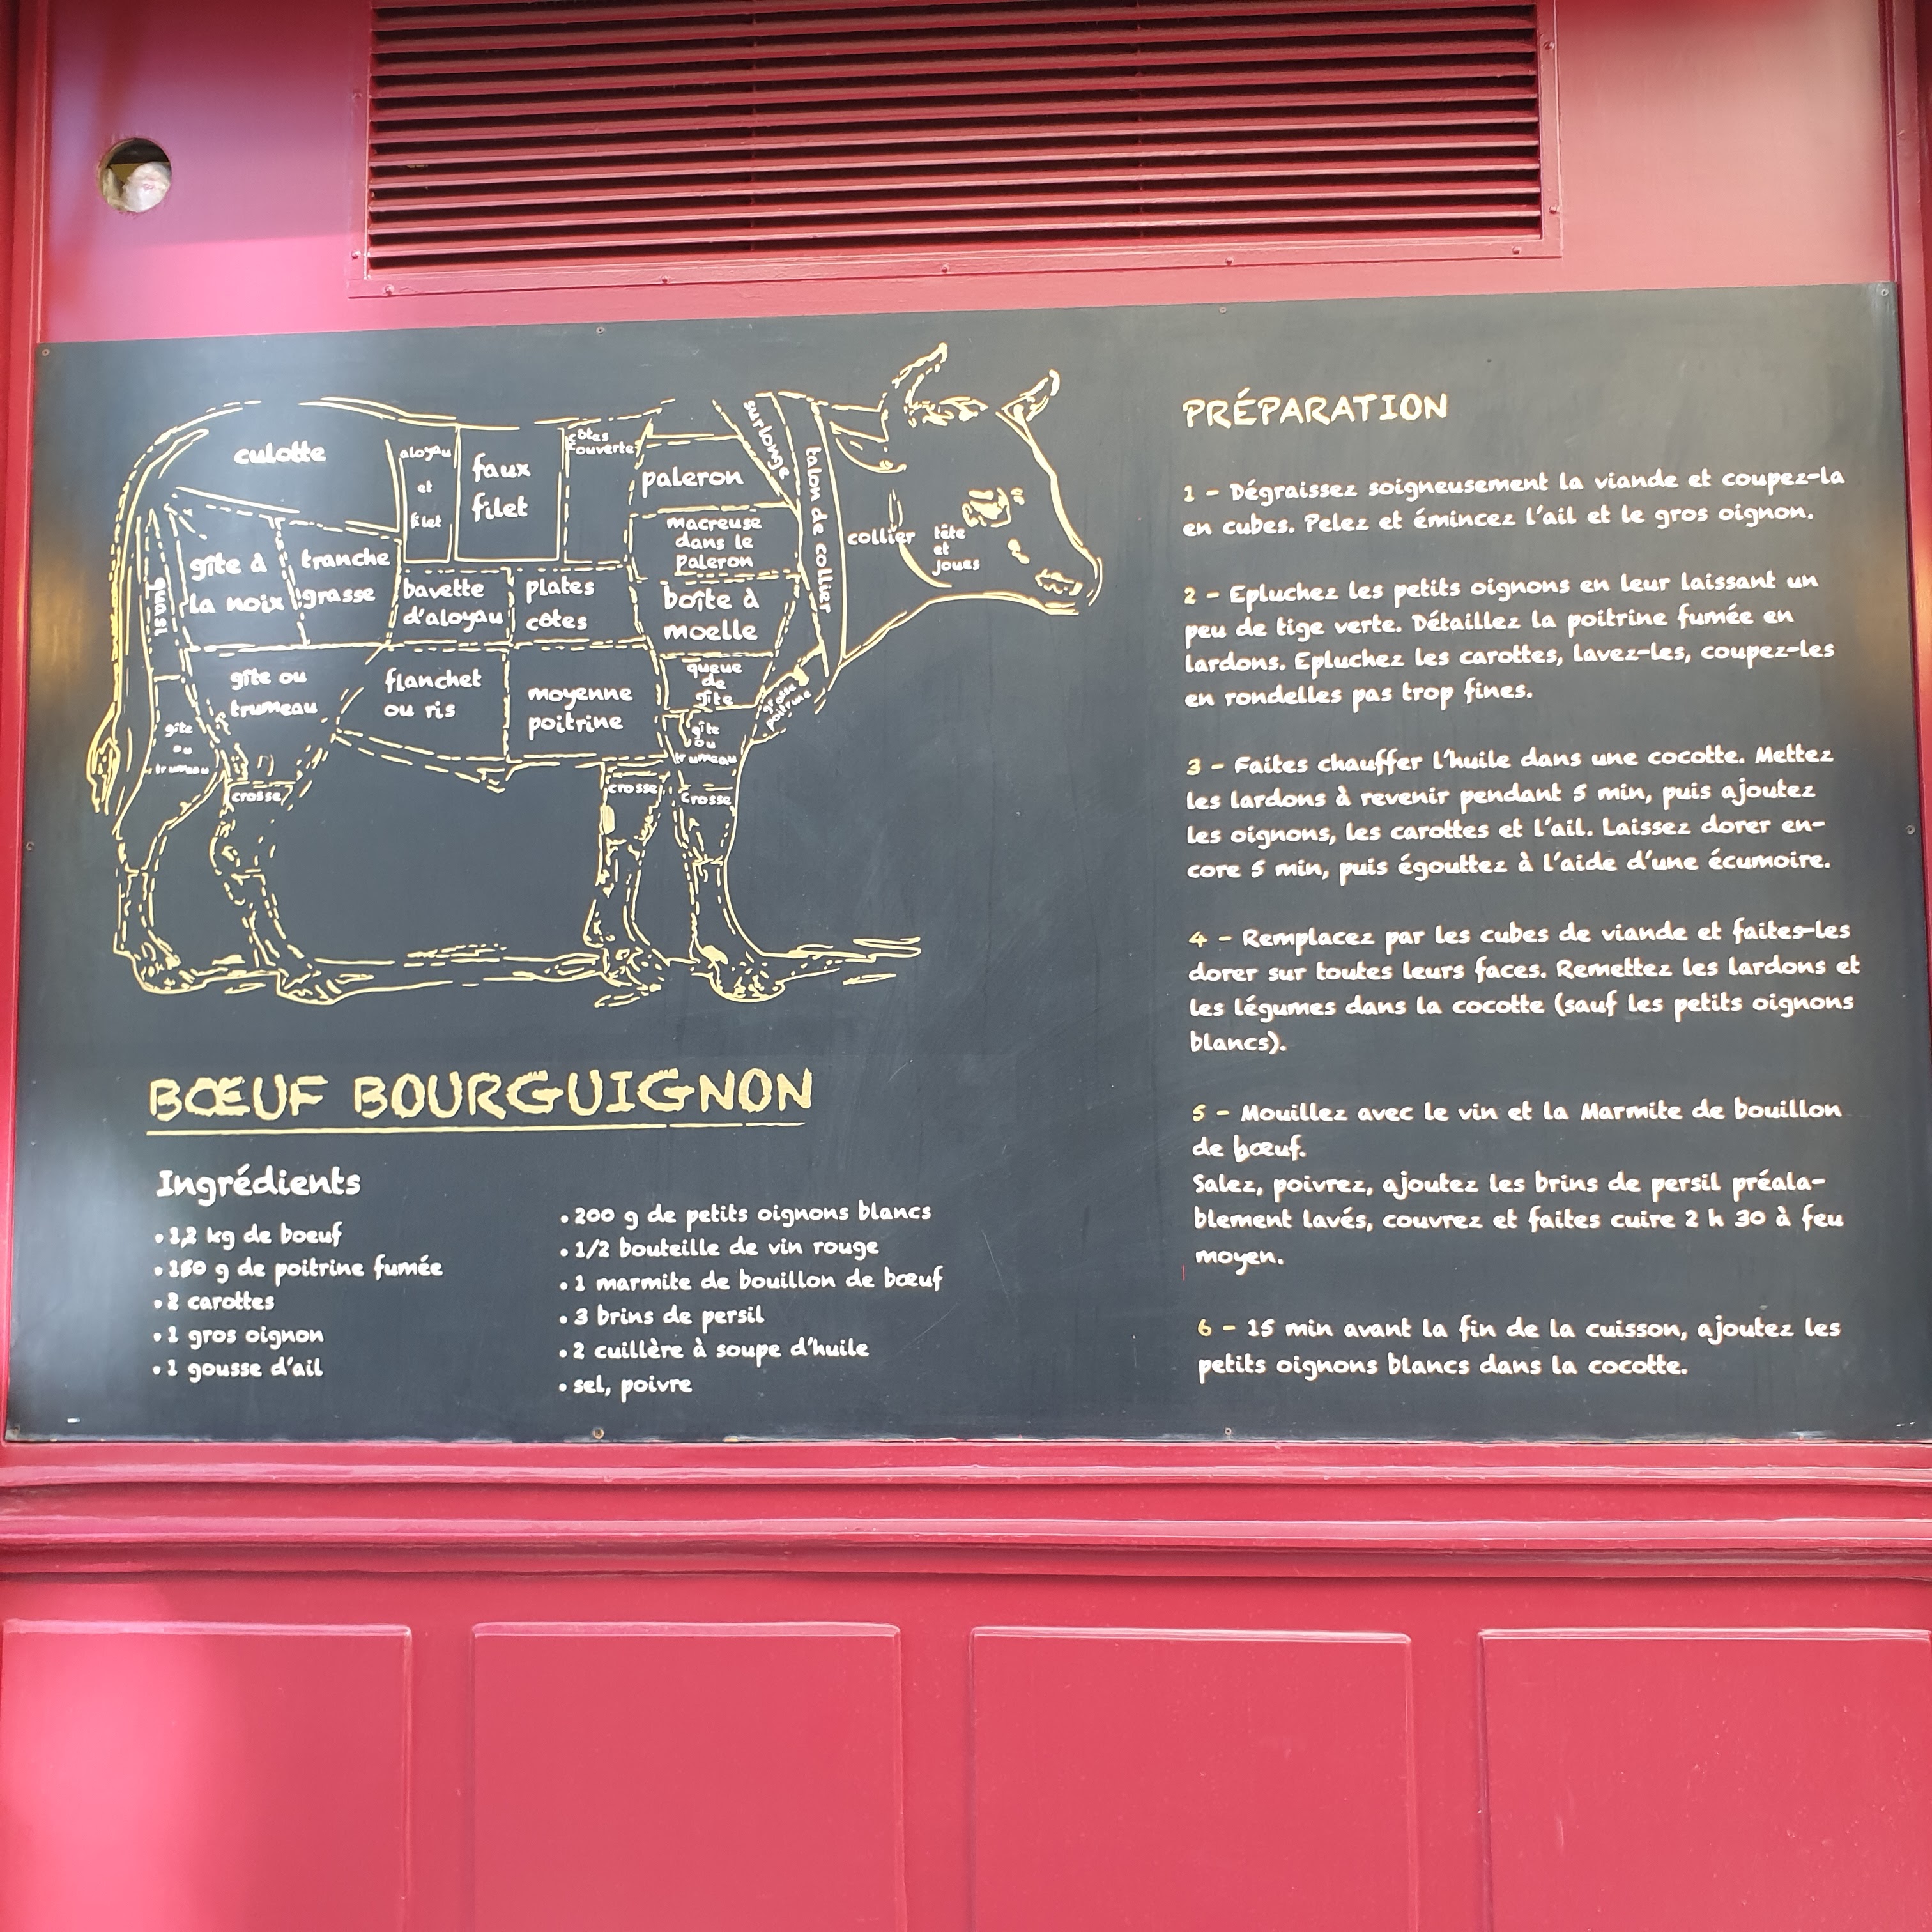 culotte
aloyau
et
filet
faux
filet
côtes
couverte
paleron
surlonge
talon de collier
collier
tête
et
joues
macreuse
dans le
paleron
gîte à
la noix
tranche
grasse
quasi
bavette
d'aloyau
plates
côtes
boîte à
moelle
gîte ou
trumeau
flanchet
ou ris
moyenne
poitrine
queue
de
gîte
grosse
poitrine
gîte
ou
trumeau
gîte
ou
trumeau
crosse
crosse
crosse
BŒUF BOURGUIGNON
Ingrédients
• 1,2 kg de boeuf
• 150 g de poitrine fumée
• 2 carottes
• 1 gros oignon
• 1 gousse d'ail
• 200 g de petits oignons blancs
• 1/2 bouteille de vin rouge
• 1 marmite de bouillon de bœuf
• 3 brins de persil
• 2 cuillère à soupe d'huile
• sel, poivre
PRÉPARATION
1 - Dégraissez soigneusement la viande et coupez-la
en cubes. Pelez et émincez l'ail et le gros oignon.
2 - Epluchez les petits oignons en leur laissant un
peu de tige verte. Détaillez la poitrine fumée en
lardons. Epluchez les carottes, lavez-les, coupez-les
en rondelles pas trop fines.
3 - Faites chauffer l'huile dans une cocotte. Mettez
les lardons à revenir pendant 5 min, puis ajoutez
les oignons, les carottes et l'ail. Laissez dorer en-
core 5 min, puis égouttez à l'aide d'une écumoire.
4 - Remplacez par les cubes de viande et faites-les
dorer sur toutes leurs faces. Remettez les lardons et
les légumes dans la cocotte (sauf les petits oignons
blancs).
5 - Mouillez avec le vin et la Marmite de bouillon
de bœuf.
Salez, poivrez, ajoutez les brins de persil préala-
blement lavés, couvrez et faites cuire 2 h 30 à feu
moyen.
6 - 15 min avant la fin de la cuisson, ajoutez les
petits oignons blancs dans la cocotte.